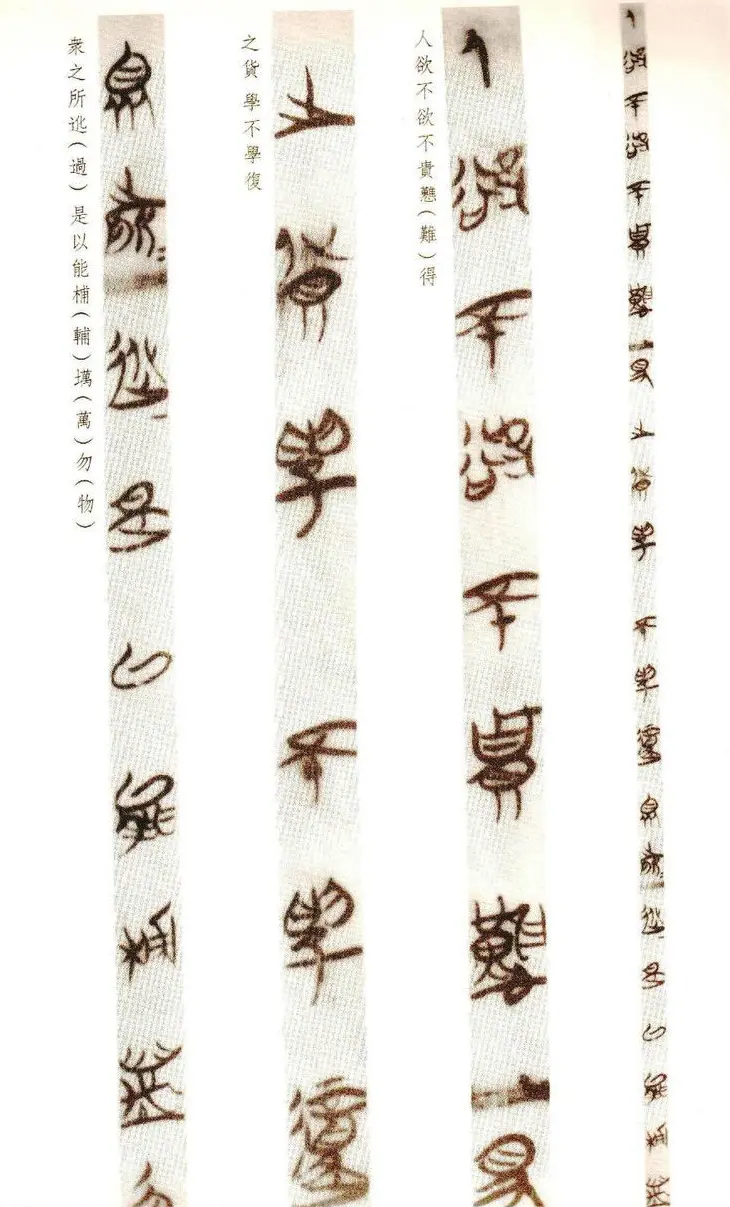 人欲不欲不貴戁(難)得
之貨 學不學復
衆之所𨒙(過)是以能㭪(輔)𡑞(萬)勿(物)